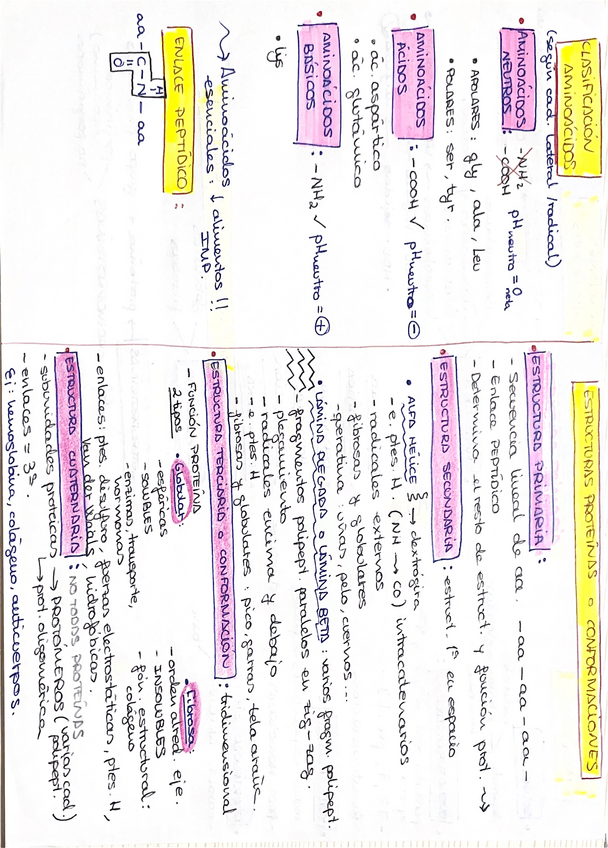 CLASIFICACIÓN
AMINOÁCIDOS
(según cad. lateral/radical)
• AMINOÁCIDOS NEUTROS : -NH₂ pH neutro = 0 neta
-COOH
• APOLARES: gly, ala, leu
• POLARES: ser, tyr.
• AMINOÁCIDOS ÁCIDOS : -COOH ✓ pH neutro = ⊖
• ác. aspártico
• ác. glutámico
• AMINOÁCIDOS BÁSICOS : -NH₂ ✓ pH neutro = ⊕
• lys
→ Aminoácidos
esenciales: ↓ alimentos !!
IMP.
ENLACE PEPTÍDICO :
H
aa - C - N - aa
O
ESTRUCTURAS PROTEÍNAS o CONFORMACIONES
• ESTRUCTURA PRIMARIA :
- Secuencia lineal de aa. - aa - aa - aa -
- Enlace PEPTÍDICO
- Determina el resto de estruct. y función prot. →
• ESTRUCTURA SECUNDARIA : estruct. 1ª en espacio
• ALFA HÉLICE → dextrógira
- e. ptes. H. (NH → CO) intracatenarios
- radicales externos
- fibrosas y globulares
- queratina: uñas, pelo, cuernos...
• LÁMINA PLEGADA o LÁMINA BETA: varios fragm polipept.
- fragmentos polipept. paralelos en zig-zag.
- plegamiento
- radicales encima y debajo
- e. ptes. H
- fibrosas y globulares: pico, garras, tela arañ.
• ESTRUCTURA TERCIARIA o CONFORMACIÓN : tridimensional
- FUNCIÓN PROTEÍNA
2 tipos • Globular:
- esféricas
- SOLUBLES
- enzimas, transporte,
hormonas
• Fibrosa:
- orden alred. eje.
- INSOLUBLES
- fón. estructural:
colágeno
- enlaces: ptes. disulfuro, fuerzas electrostáticas, ptes. H,
Van der Walls, hidrofóbicas.
• ESTRUCTURA CUATERNARIA : NO TODAS PROTEÍNAS
- subunidades proteicas → PROTÓMEROS (varias cad. polipept.)
↳ prot. oligomérica
- enlaces = 3ª.
Ej: hemoglobina, colágeno, anticuerpos.